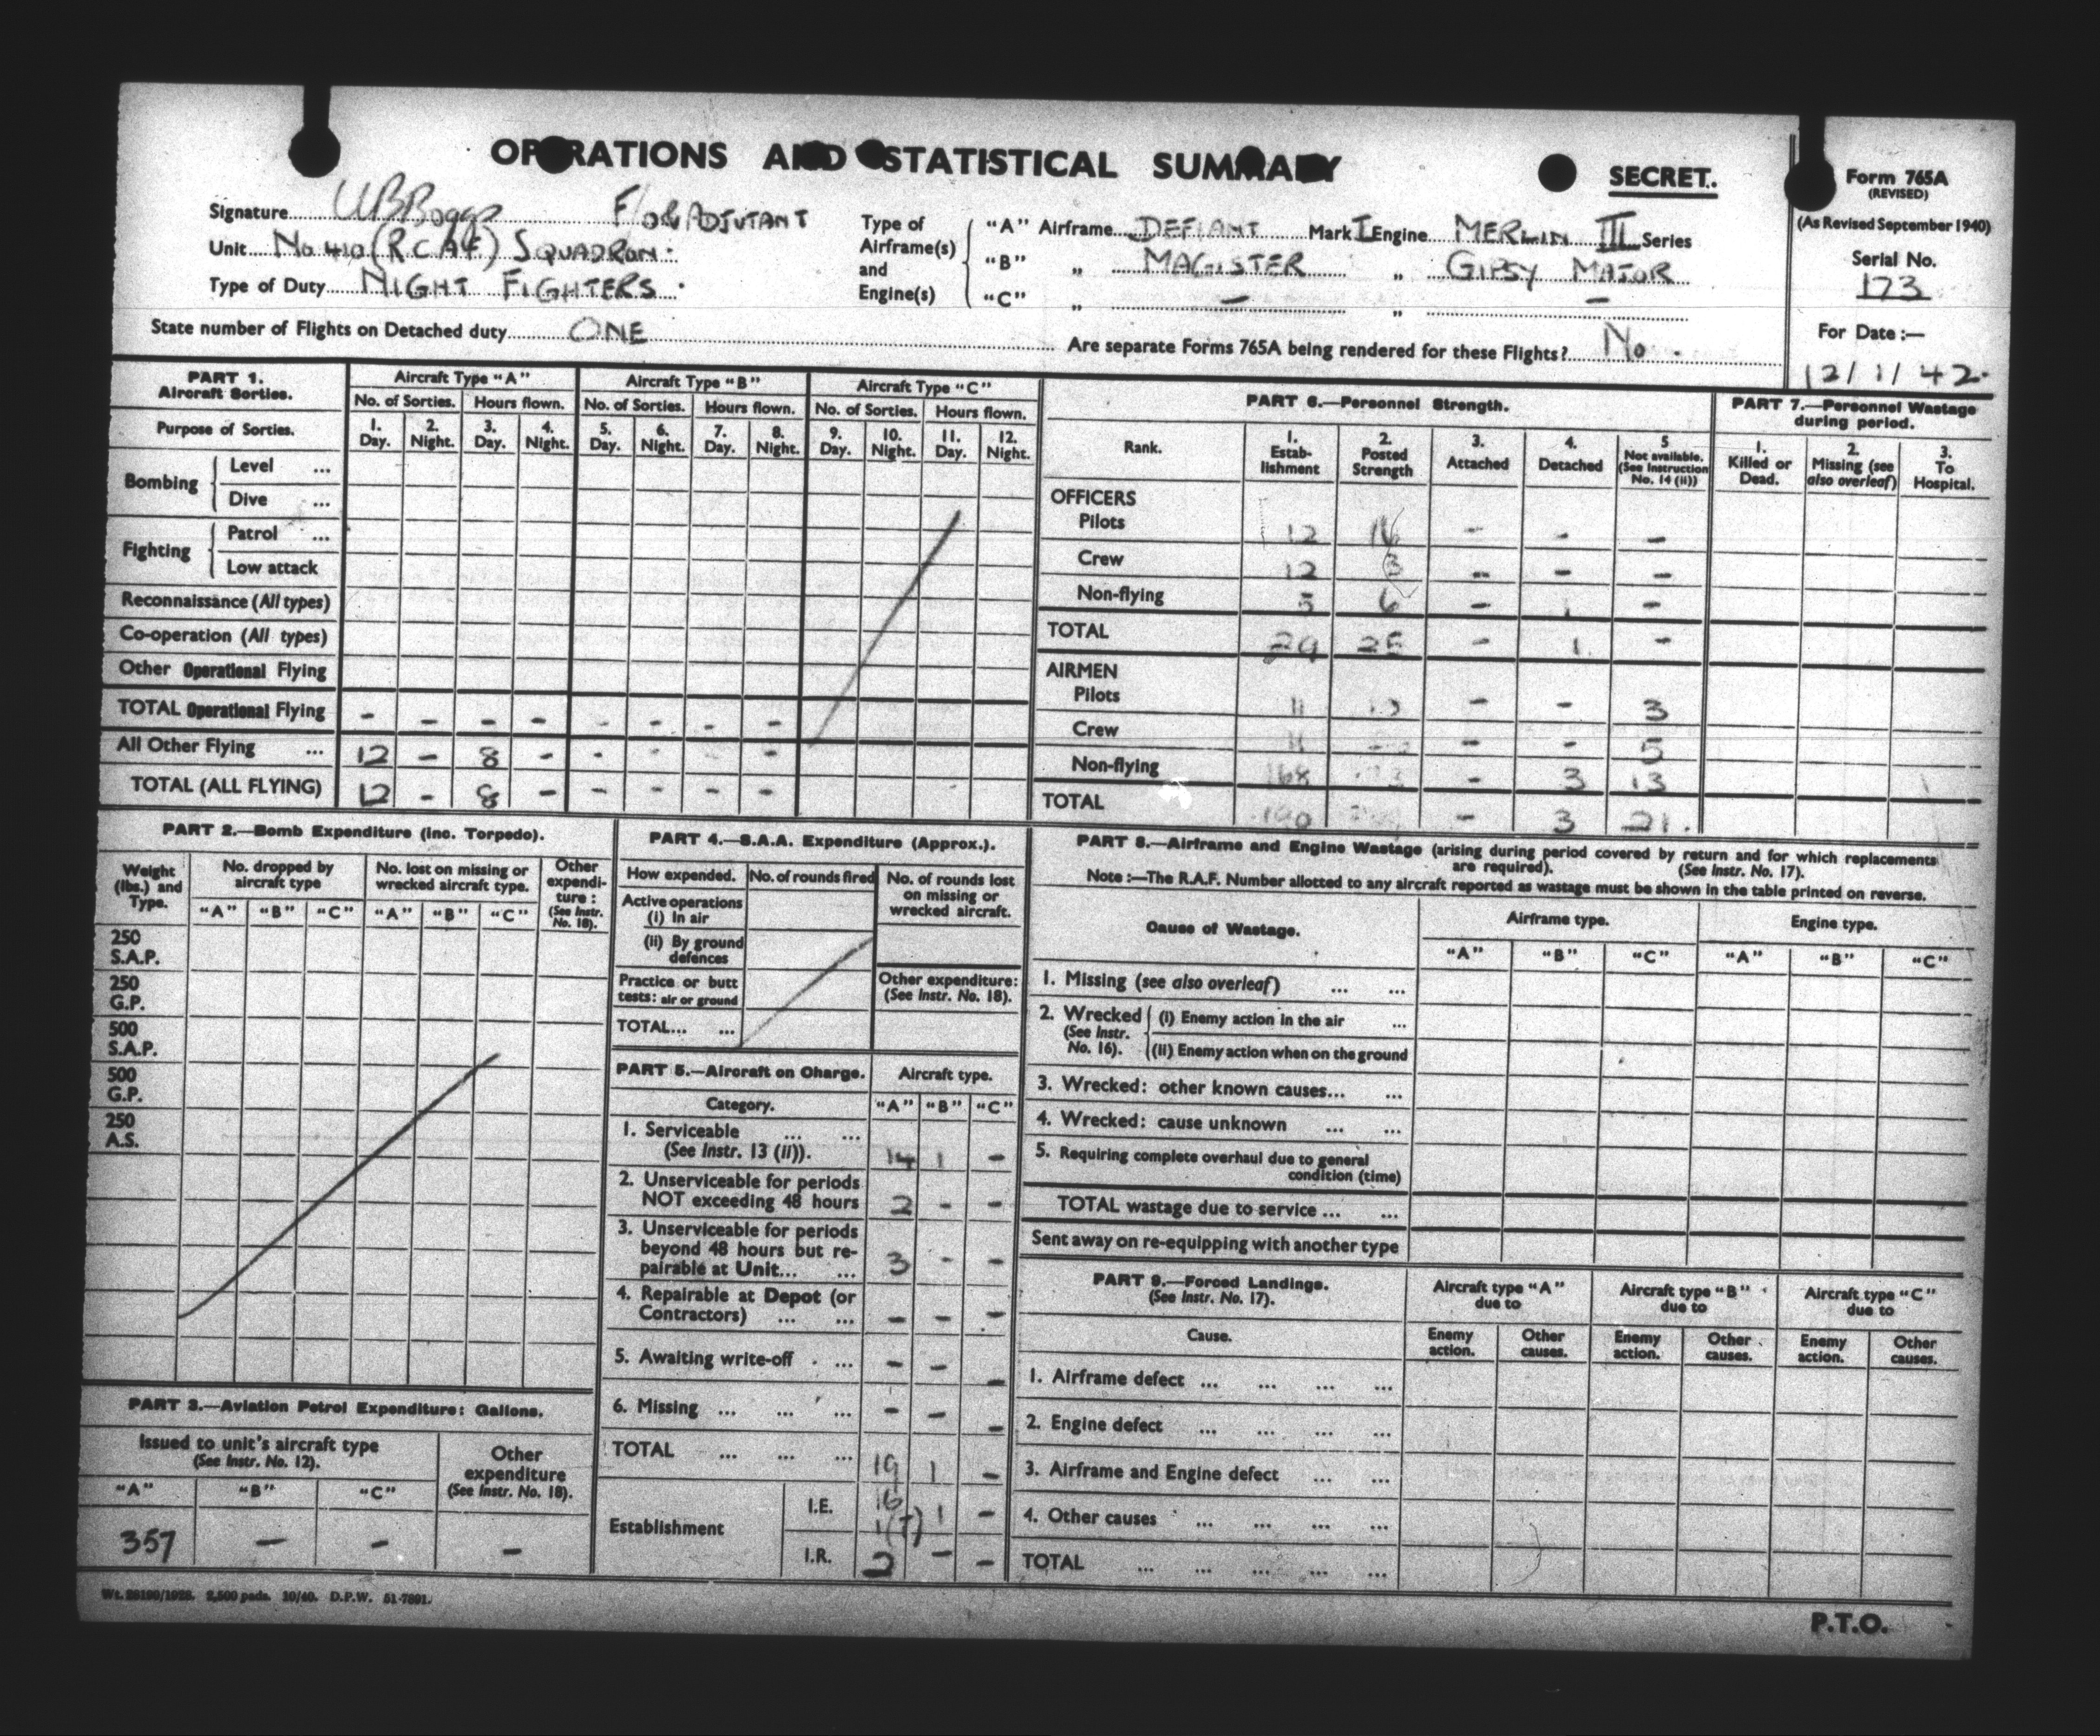 OPERATIONS AND STATISTICAL SUMMARY
SECRET.
Form 765A
(REVISED)
(As Revised September 1940)
Serial No.
173
For Date :—
12/1/42.
Signature WBBoggs F/O & ADJUTANT
Unit No 410 (R.C.A.F) SQUADRON.
Type of Duty NIGHT FIGHTERS.
Type of Airframe(s) and Engine(s)
"A" Airframe DEFIANT Mark I Engine MERLIN III Series
"B" „ MAGISTER „ GIPSY MAJOR
"C" „ — „ —
State number of Flights on Detached duty ONE
Are separate Forms 765A being rendered for these Flights? No.
PART 1.
Aircraft Sorties.
Aircraft Type "A" Aircraft Type "B" Aircraft Type "C"
No. of Sorties. Hours flown. No. of Sorties. Hours flown. No. of Sorties. Hours flown.
Purpose of Sorties.
1. Day. 2. Night. 3. Day. 4. Night. 5. Day. 6. Night. 7. Day. 8. Night. 9. Day. 10. Night. 11. Day. 12. Night.
Bombing
Level ...
Dive ...
Fighting
Patrol ...
Low attack
Reconnaissance (All types)
Co-operation (All types)
Other Operational Flying
TOTAL Operational Flying - - - - - - - -
All Other Flying ... 12 - 8 - - - - -
TOTAL (ALL FLYING) 12 - 8 - - - - -
PART 6.—Personnel Strength.
Rank.
1. Establishment
2. Posted Strength
3. Attached
4. Detached
5 Not available. (See Instruction No. 14 (ii))
OFFICERS
Pilots 12 16 - - -
Crew 12 3 - - -
Non-flying 5 6 - 1 -
TOTAL 29 25 - 1 -
AIRMEN
Pilots 11 - - 3
Crew 11 - - 5
Non-flying 168 - 3 13
TOTAL 190 - 3 21.
PART 7.—Personnel Wastage during period.
1. Killed or Dead.
2. Missing (see also overleaf)
3. To Hospital.
PART 2.—Bomb Expenditure (Inc. Torpedo).
Weight (lbs.) and Type.
No. dropped by aircraft type
No. lost on missing or wrecked aircraft type.
Other expenditure : (See Instr. No. 18).
"A" "B" "C" "A" "B" "C"
250 S.A.P.
250 G.P.
500 S.A.P.
500 G.P.
250 A.S.
PART 3.—Aviation Petrol Expenditure: Gallons.
Issued to unit's aircraft type
(See Instr. No. 12).
Other expenditure
(See Instr. No. 18).
"A" "B" "C"
357 — - —
PART 4.—S.A.A. Expenditure (Approx.).
How expended. No. of rounds fired
No. of rounds lost on missing or wrecked aircraft.
Active operations
(i) In air
(ii) By ground defences
Practice or butt tests: air or ground
Other expenditure:
(See Instr. No. 18).
TOTAL... ...
PART 5.—Aircraft on Charge. Aircraft type.
Category. "A" "B" "C"
1. Serviceable ... ...
(See Instr. 13 (ii)). 14 1 -
2. Unserviceable for periods
NOT exceeding 48 hours 2 - -
3. Unserviceable for periods
beyond 48 hours but re-
pairable at Unit... ... 3 - -
4. Repairable at Depot (or
Contractors) ... ... - - -
5. Awaiting write-off . ... - - -
6. Missing ... ... ... - - -
TOTAL ... ... ... 19 1 -
Establishment
I.E. 16 1(T) 1 -
I.R. 2 - -
PART 8.—Airframe and Engine Wastage (arising during period covered by return and for which replacements
are required). (See Instr. No. 17).
Note :—The R.A.F. Number allotted to any aircraft reported as wastage must be shown in the table printed on reverse.
Cause of Wastage.
Airframe type. Engine type.
"A" "B" "C" "A" "B" "C"
1. Missing (see also overleaf) ... ...
2. Wrecked (See Instr. No. 16).
(i) Enemy action in the air ...
(ii) Enemy action when on the ground
3. Wrecked: other known causes... ...
4. Wrecked: cause unknown ... ...
5. Requiring complete overhaul due to general
condition (time)
TOTAL wastage due to service ... ...
Sent away on re-equipping with another type
PART 9.—Forced Landings.
(See Instr. No. 17).
Aircraft type "A" due to
Aircraft type "B" due to
Aircraft type "C" due to
Cause.
Enemy action. Other causes. Enemy action. Other causes. Enemy action. Other causes.
1. Airframe defect ... ... ... ...
2. Engine defect ... ... ... ...
3. Airframe and Engine defect ... ...
4. Other causes ... ... ... ...
TOTAL ... ... ... ... ...
Wt. 28190/1928. 2,500 pads. 10/40. D.P.W. 51-7891.
P.T.O.